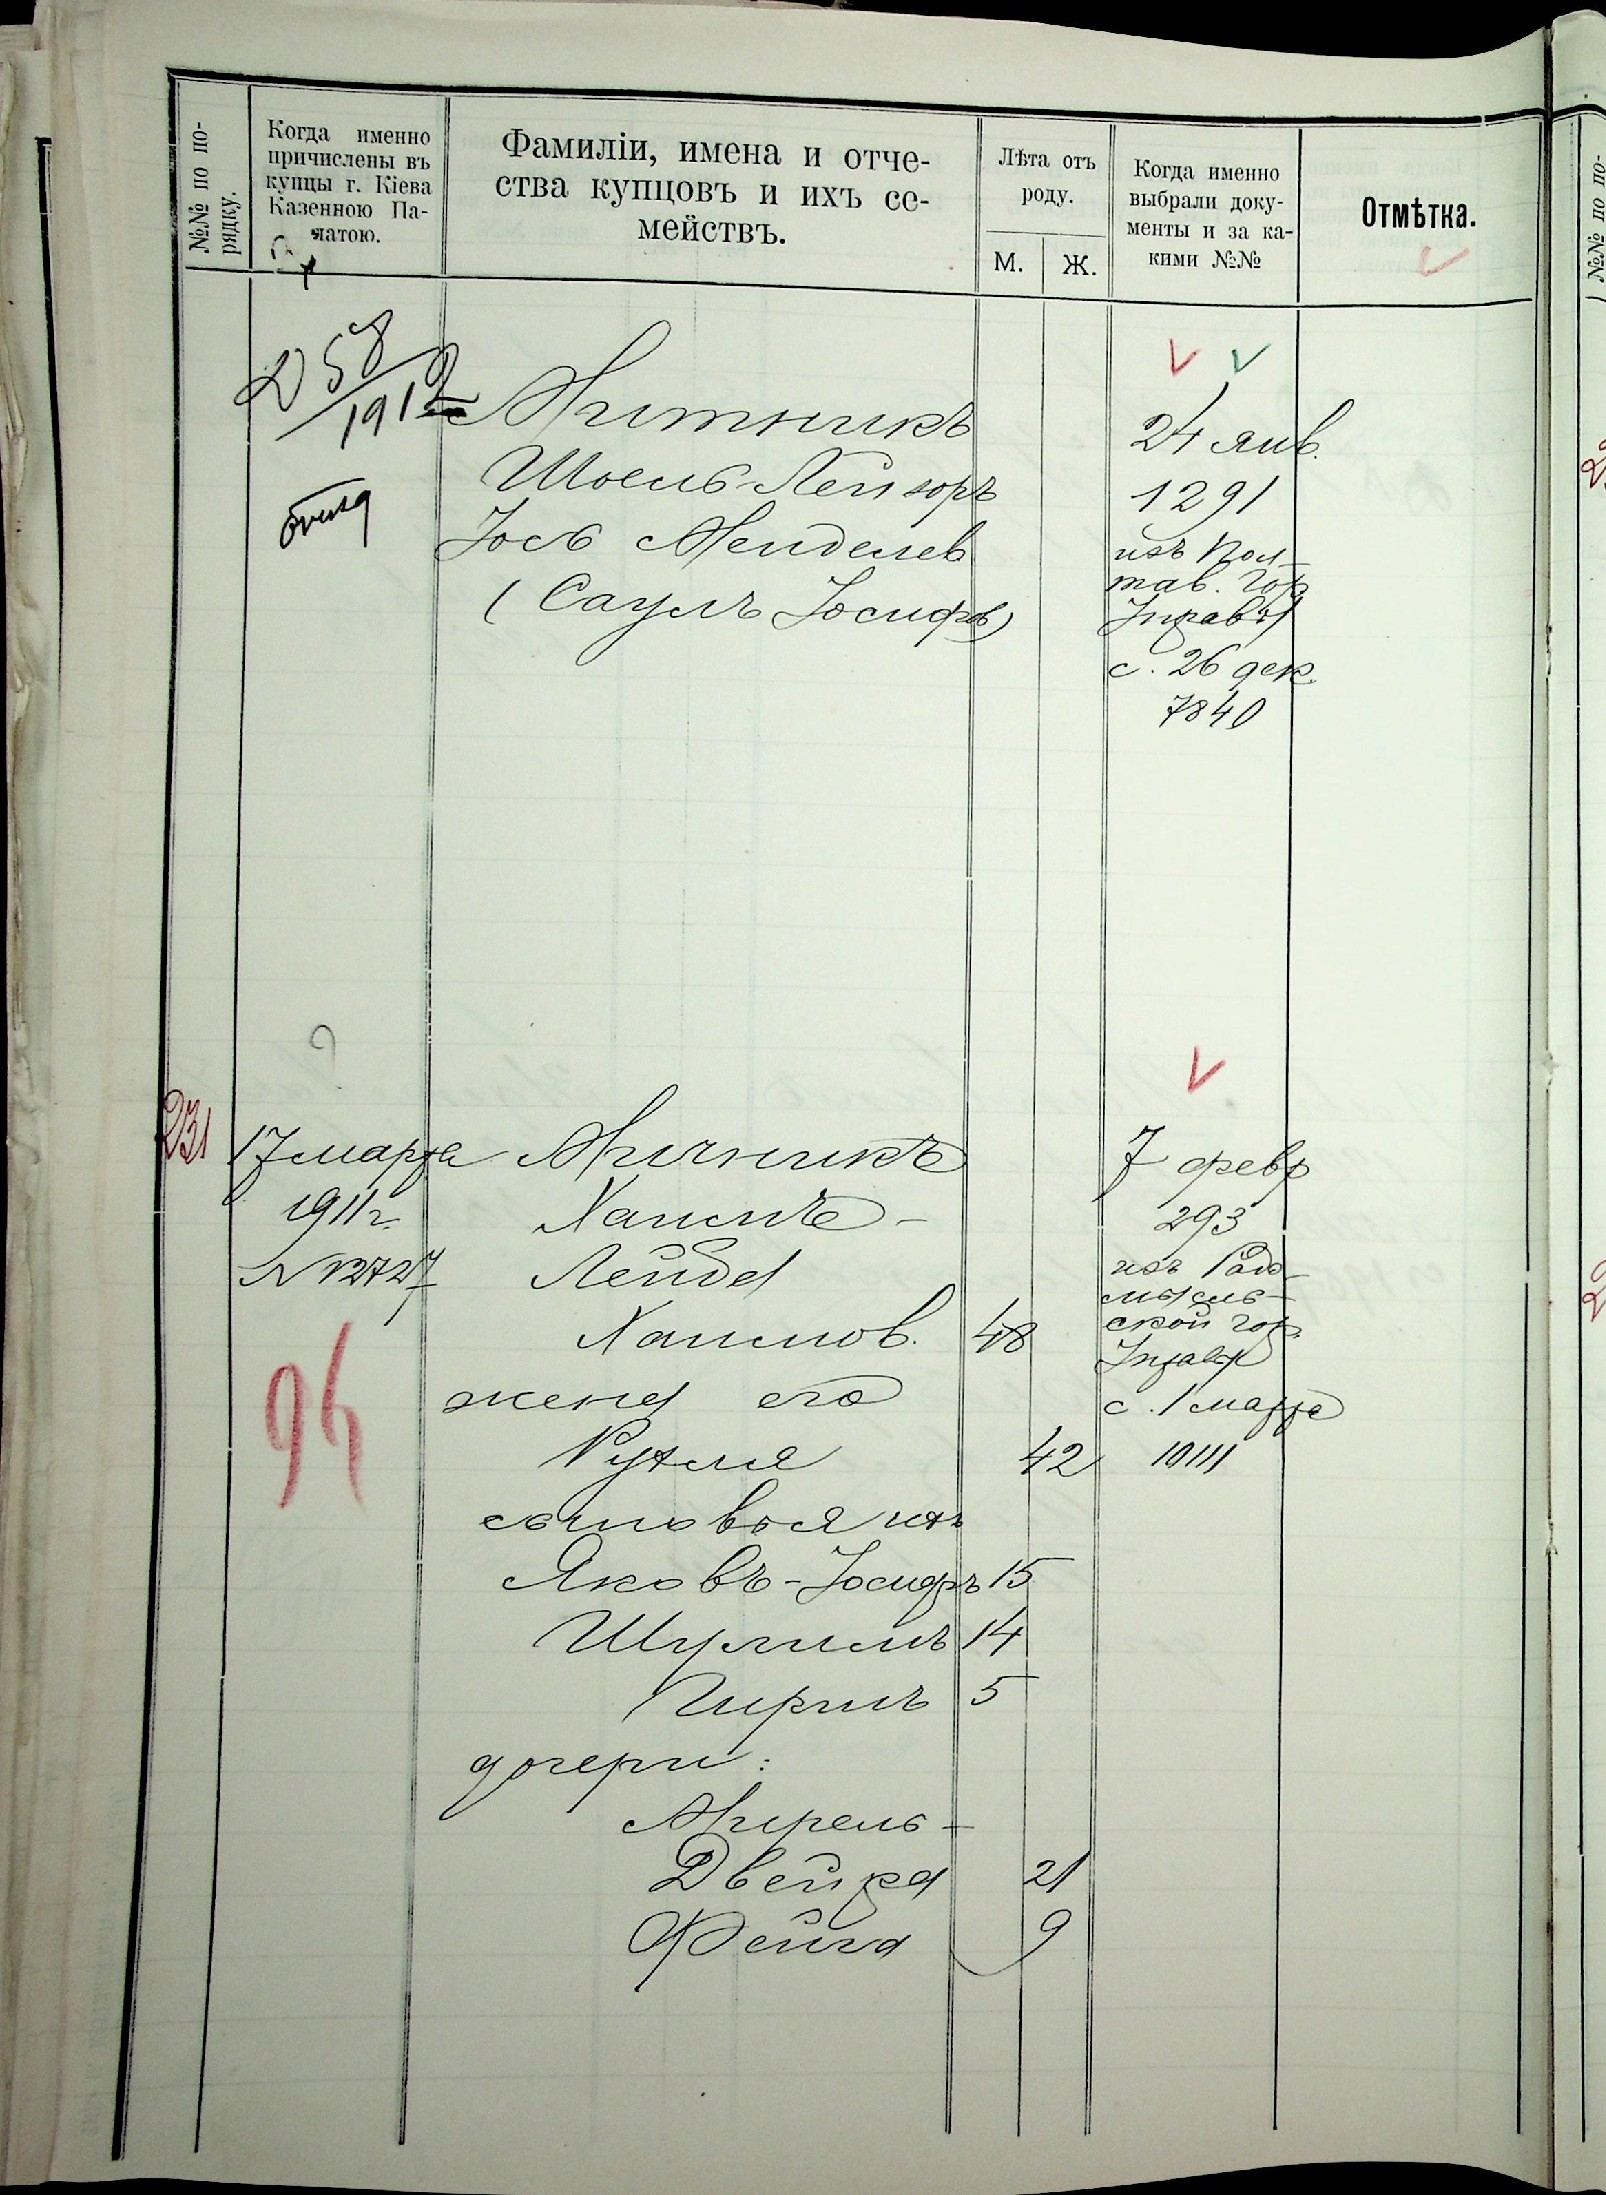 №№ по по-
рядку.
Когда именно
причислены въ
купцы г. Кіева
Казенною Па-
латою.
Фамиліи, имена и отче-
ства купцовъ и ихъ се-
мействъ.
Лѣта отъ
роду.
М. Ж.
Когда именно
выбрали доку-
менты и за ка-
кими №№
Отмѣтка.
58
1912
Митникъ
Шоель-Лейзоръ
Іосъ Менделев
(Саулъ Іосифов)
24 янв.
1291
изъ Пол-
тав. Гор.
Управы
с. 26 дек.
7840
231
17 марта
1911 г.
N 12727
94
Мичникъ
Хаимъ-
Лейба
Хаимов. 48
жена его
Рухля 42
сыновья ихъ
Яковъ-Іосифъ 15
Шулимъ 14
Пиримъ 5
дочери:
Мирель-
Двейра 21
Фейга 9
7 февр
293
изъ Радо-
мысль-
ской гор.
Управы
с. 1 марта
10111